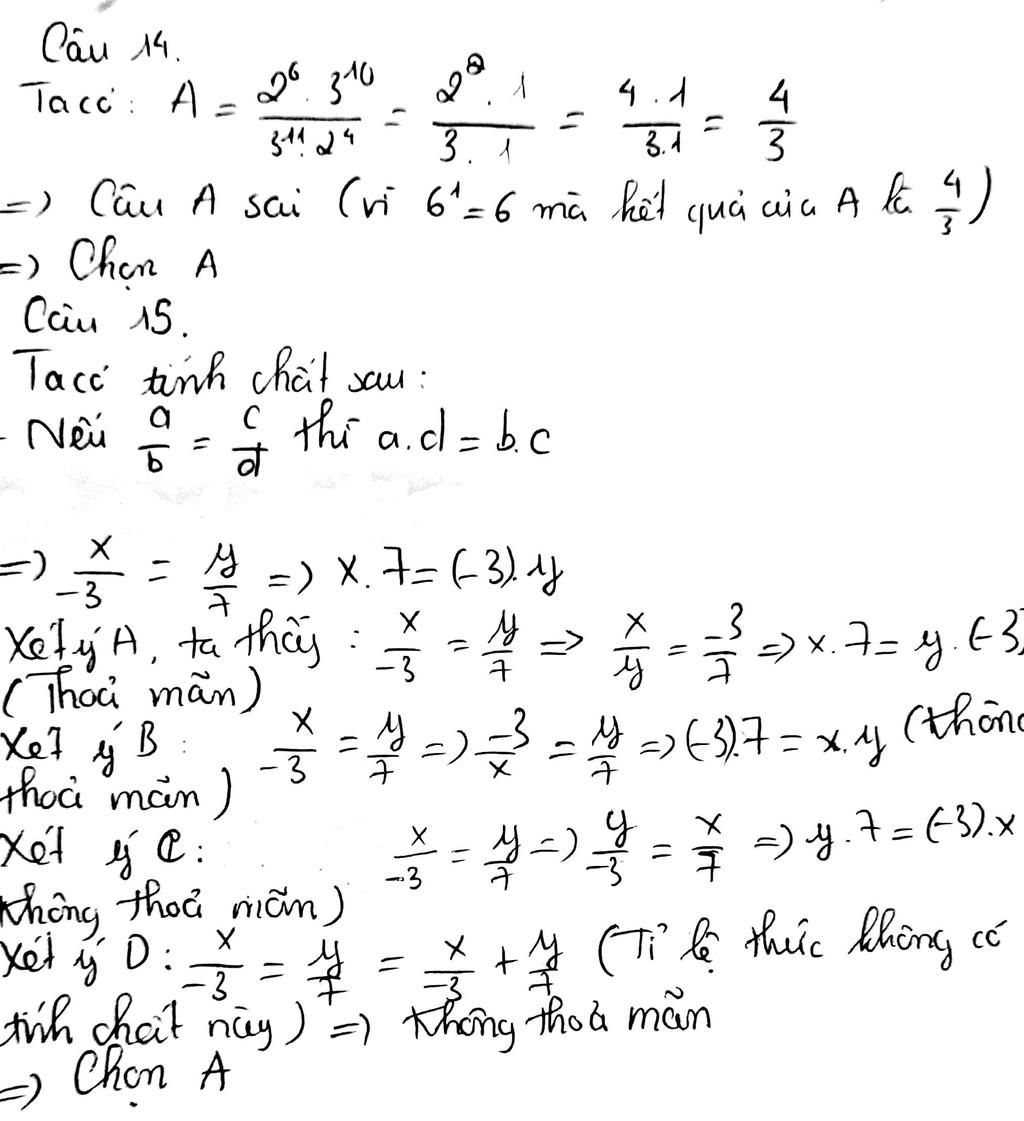 Câu 14.
Ta có: A = 2^6 . 3^10 / 3^11 . 2^4 = 2^2 . 1 / 3 . 1 = 4 . 1 / 3.1 = 4/3
=> Câu A sai (vì 6^1 = 6 mà kết quả của A là 4/3)
=> Chọn A
Câu 15.
Ta có tính chất sau:
- Nếu a/b = c/d thì a.d = b.c
=> x/-3 = y/7 => x.7 = (-3).y
Xét ý A, ta thấy: x/-3 = y/7 => x/y = -3/7 => x.7 = y.(-3)
(Thoả mãn)
Xét ý B: x/-3 = y/7 => -3/x = y/7 => (-3).7 = x.y (không
thoả mãn)
Xét ý C: x/-3 = y/7 => y/-3 = x/7 => y.7 = (-3).x
không thoả mãn)
Xét ý D: x/-3 = y/7 = x/-3 + y/7 (Tỉ lệ thức không có
tính chất này) => không thoả mãn
=> Chọn A